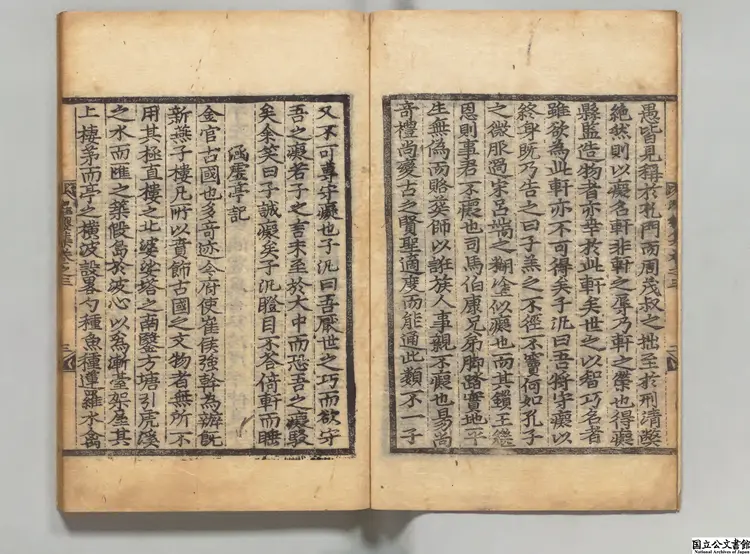 愚皆見稱於孔門而周茂叔之拙至於刑清獘
絶然則以癡名軒非軒之辱乃軒之榮也得癡
縣監造物者亦幸於此軒矣世之以智巧名者
雖欲爲此軒亦不可得矣子汎曰吾守癡以
終身既乃告之曰子羔之不徑不竇何如孔子
之微服過宋呂端之糊塗似癡也而其鎖王繼
恩則事君不癡也司馬伯康兄弟脚踏實地平
生無僞而賂葬師以誑族人事親不癡也易尚
奇禮尚變古之賢聖適度而能通此類不一子
又不可專守癡也子汎曰吾厭世之巧而欲守
吾之癡若子之言未至於大中而恐吾之癡騃
矣余笑曰子誠癡矣子汎瞪目不答倚軒而睡
涵虛亭記
金官古國也多奇迹今府使崔侯強幹爲辦既
新燕子樓凡所以賁飾古國之文物者無所不
用其極直樓之北婆娑塔之南鑿方塘引虎溪
之水而匯之築假島於波心以爲漸臺架屋其
上棲茅而亭之橫波設畧彴種魚種蓮羅水禽
國立公文書館
National Archives of Japan